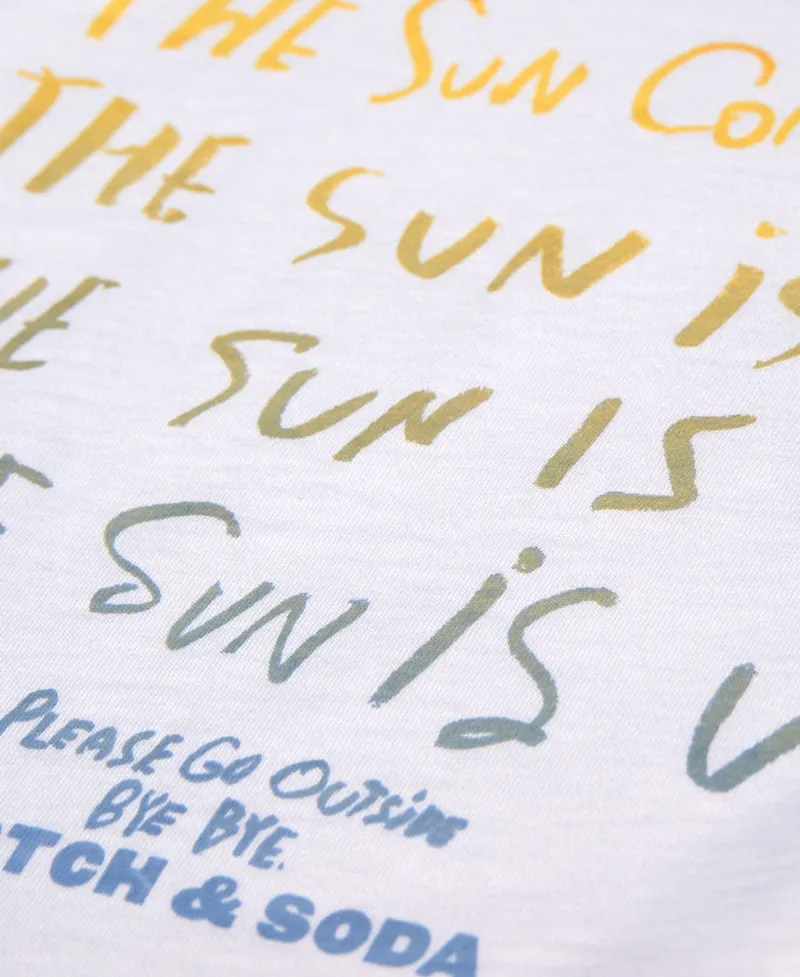 THE SUN
THE SUN
SUN IS
SUN iS
PLEASE GO OUTSiDE
BYE BYE.
& SODA